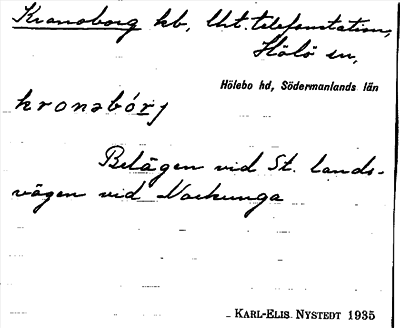 Kronoborg hb, Utt. telefonstation,
Hölö sn,
Hölebo hd, Södermanlands län
kronəbórj
Belägen vid St. lands-
vägen vid Norrunga
KARL-ELIS NYSTEDT 1935